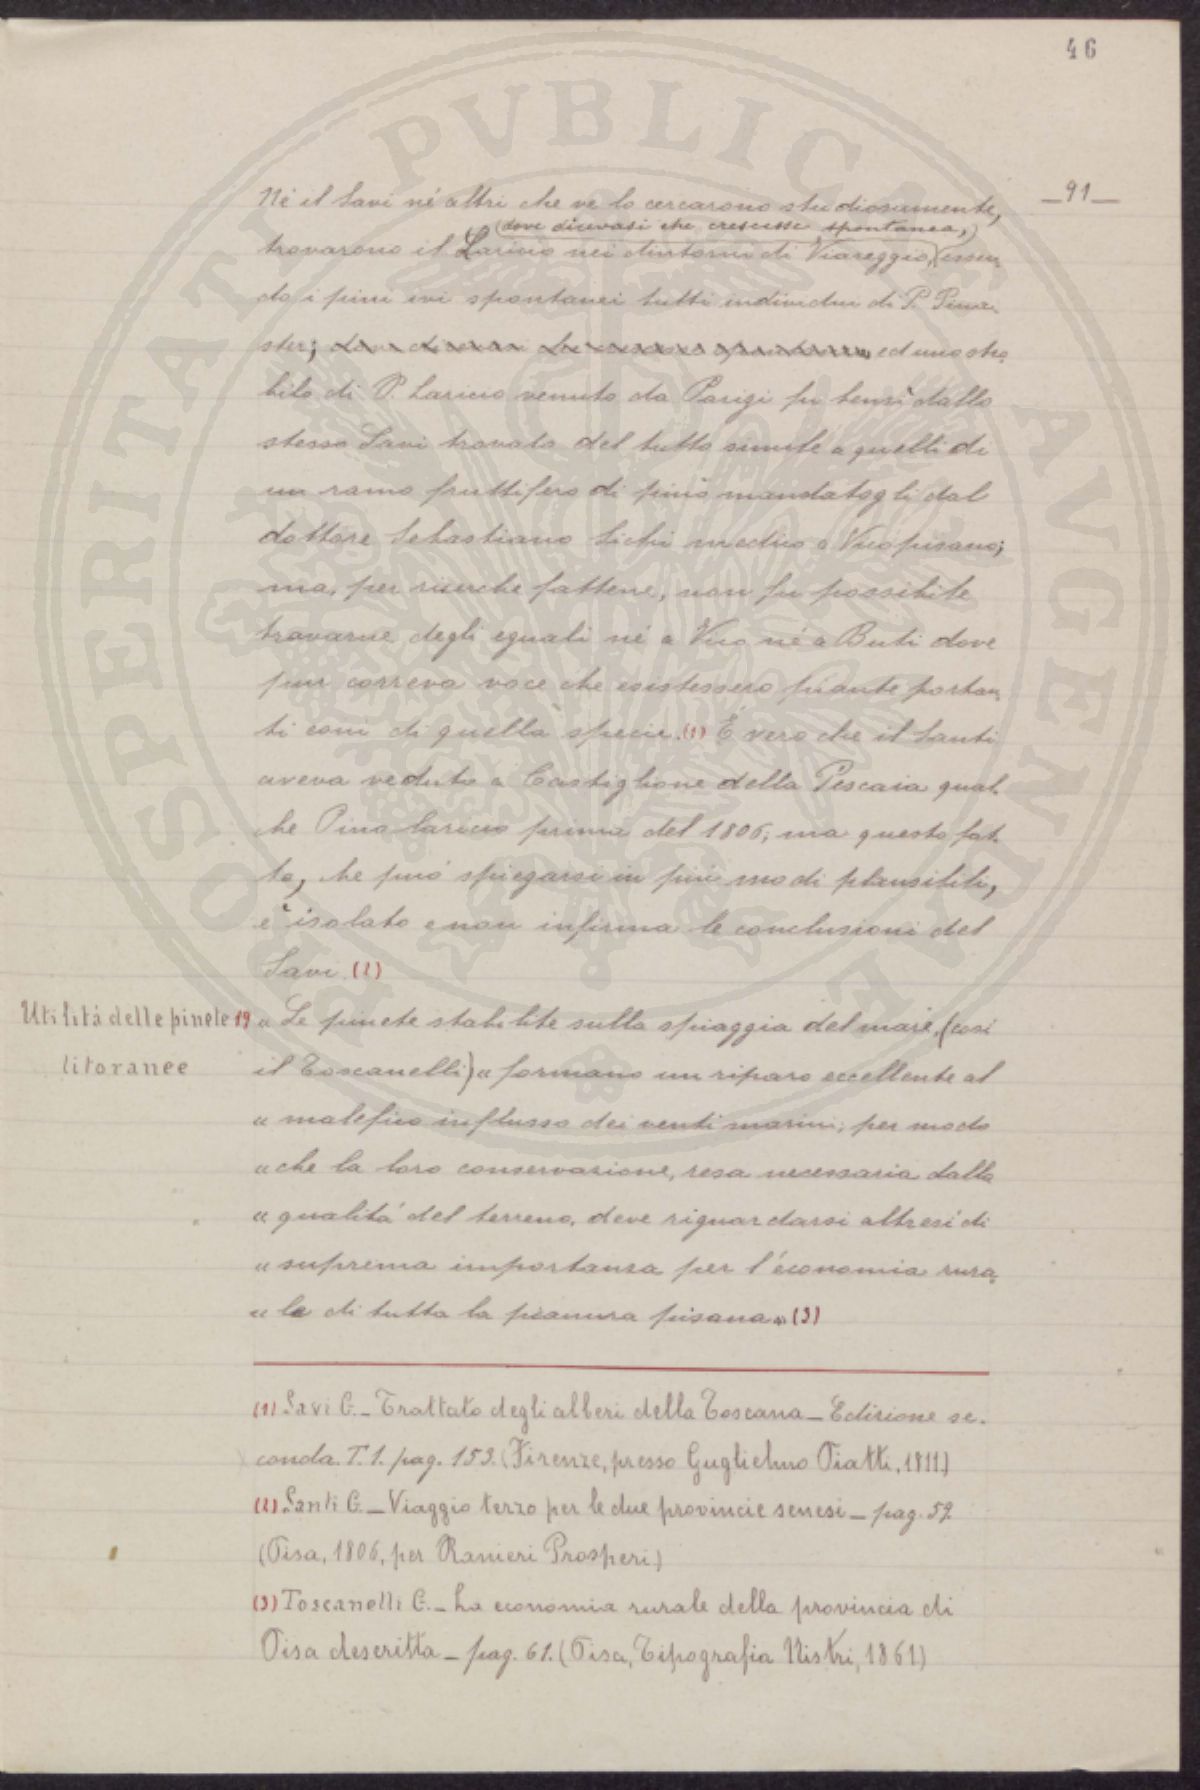 46
_91_
Né il Savi né altri che ve lo cercarono studiosamente,
(dove dicevasi che crescesse spontanea,)
trovarono il Laricio nei dintorni di Viareggio, (essen,
do i pini ivi spontanei tutti individui di P. Pina,
ster; ed uno stro,
bilo di P. Laricio venuto da Parigi fu bensì dallo
stesso Savi trovato del tutto simile a quelli di
un ramo fruttifero di pino mandatogli dal
dottore Sebastiano medico a Vicopisano;
ma, per ricerche fattene, non fu possibile
trovarne degli eguali né a Vico né a Buti dove
pur correva voce che esistessero piante portan,
ti coni di quella specie. (1) È vero che il Santi
aveva veduto a Castiglione della Pescaia qual,
che Pino laricio prima del 1806; ma questo fat,
to, che può spiegarsi in più modi plausibili,
è isolato e non infirma le conclusioni del
Savi. (2)
Utilità delle pinete
litoranee
19 « Le pinete stabilite sulla spiaggia del mare, (così
il Toscanelli) « formano un riparo eccellente al
« malefico influsso dei venti marini; per modo
« che la loro conservazione, resa necessaria dalla
« qualità del terreno, deve riguardarsi altresì di
« suprema importanza per l'economia rura,
« le di tutta la pianura pisana » (3)
(1) Savi G. _ Trattato degli alberi della Toscana _ Edizione se,
conda. T. 1. pag. 153. (Firenze, presso Guglielmo Piatti, 1811)
(2) Santi G. _ Viaggio terzo per le due provincie senesi _ pag. 59.
(Pisa, 1806, per Ranieri Prosperi)
(3) Toscanelli G. _ La economia rurale della provincia di
Pisa descritta _ pag. 61. (Pisa, Tipografia Nistri, 1861)
PROSPERITATI PVBLICAE AVGENDAE